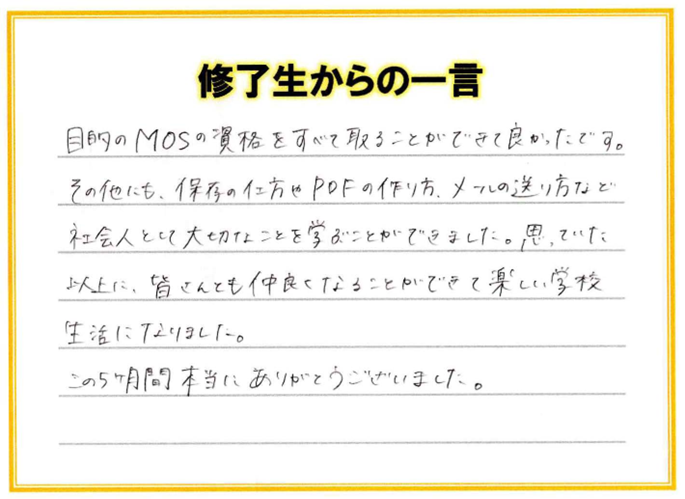 修了生からの一言
目的のMOSの資格をすべて取ることができて良かったです。
その他にも、保存の仕方やPDFの作り方、メールの送り方など
社会人として大切なことを学ぶことができました。思っていた
以上に、皆さんとも仲良くなることができて楽しい学校
生活になりました。
この5ヶ月間本当にありがとうございました。